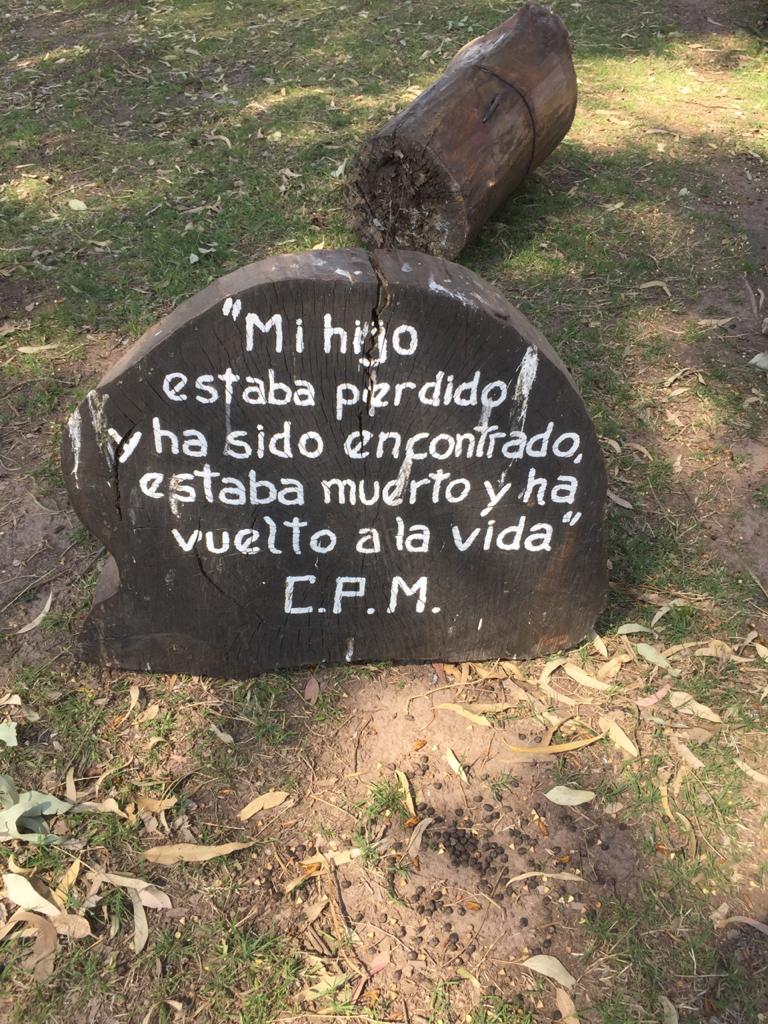 "Mi hijo
estaba perdido
y ha sido encontrado,
estaba muerto y ha
vuelto a la vida"
C.P.M.